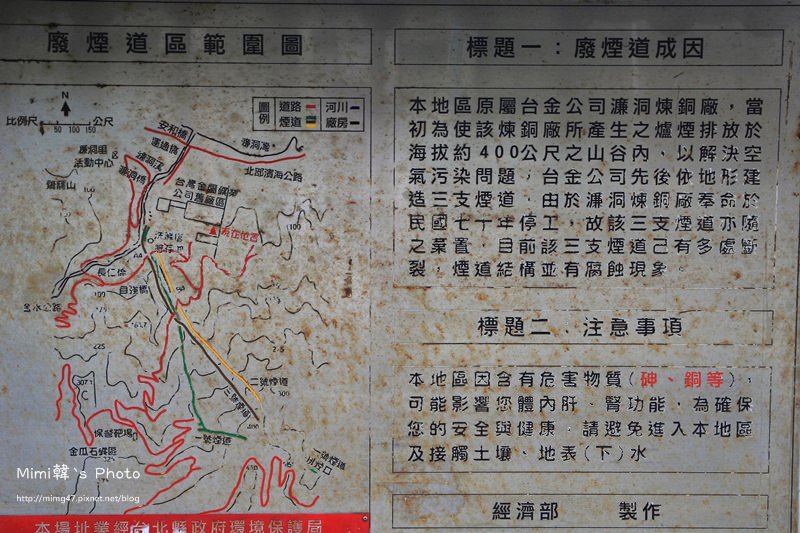 廢煙道區範圍圖
N
比例尺 公尺
50 100 150
圖例 道路 河川
煙道 廠房
安和橋
連通橋
濂洞灣
濂洞溪
濂洞橋
濂洞里
活動中心
北部濱海公路
公司舊廠區
現在位置
長仁橋
自強橋
金水公路
二號煙道
三號煙道
一號煙道
一號煙道
排放口
金瓜石礦區
Mimi韓`s Photo
http://mimg47.pixnet.net/blog
本場址業經台北縣政府環境保護局
標題一：廢煙道成因
本地區原屬台金公司濂洞煉銅廠，當
初為使該煉銅廠所產生之爐煙排放於
海拔約400公尺之山谷內，以解決空
氣污染問題，台金公司先後依地形建
造三支煙道，由於濂洞煉銅廠奉命於
民國七十年停工，故該三支煙道亦隨
之棄置，目前該三支煙道已有多處斷
裂，煙道結構並有腐蝕現象。
標題二：注意事項
本地區因含有危害物質(砷、銅等)，
可能影響您體內肝、腎功能，為確保
您的安全與健康，請避免進入本地區
及接觸土壤、地表(下)水
經濟部 製作